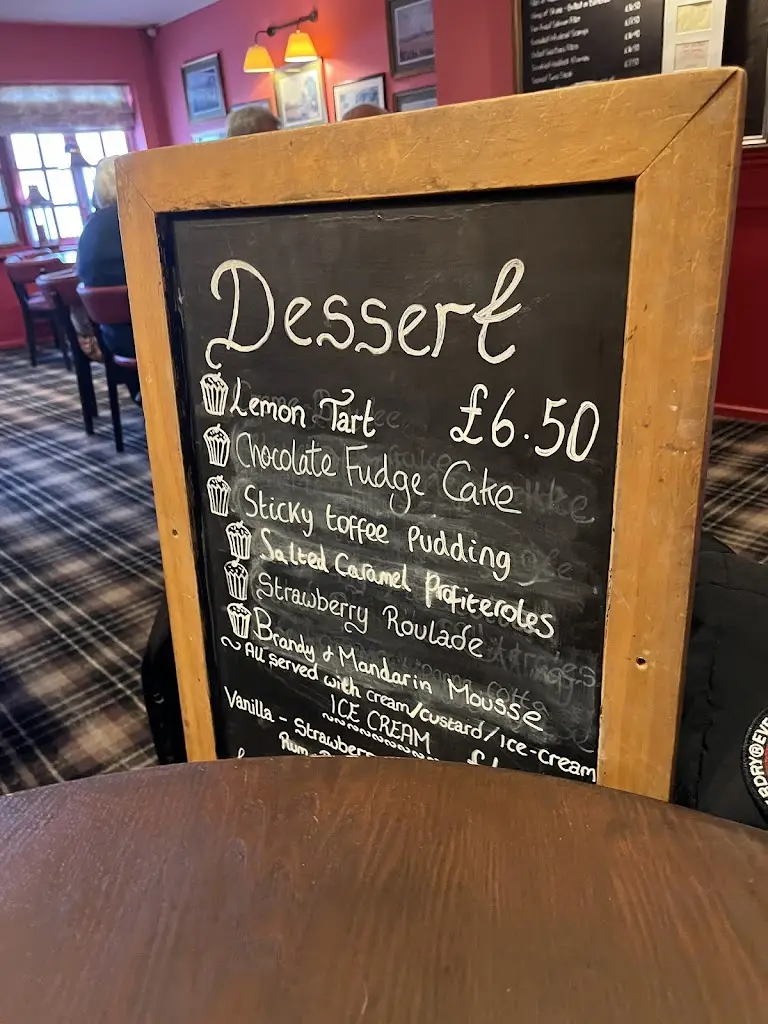 Dessert
Lemon Tart £6.50
Chocolate Fudge Cake
Sticky toffee pudding
Salted Caramel Profiteroles
Strawberry Roulade
Brandy & Mandarin Mousse
~ All served with cream/custard/ice-cream
ICE CREAM
Vanilla - Strawberry
Rum